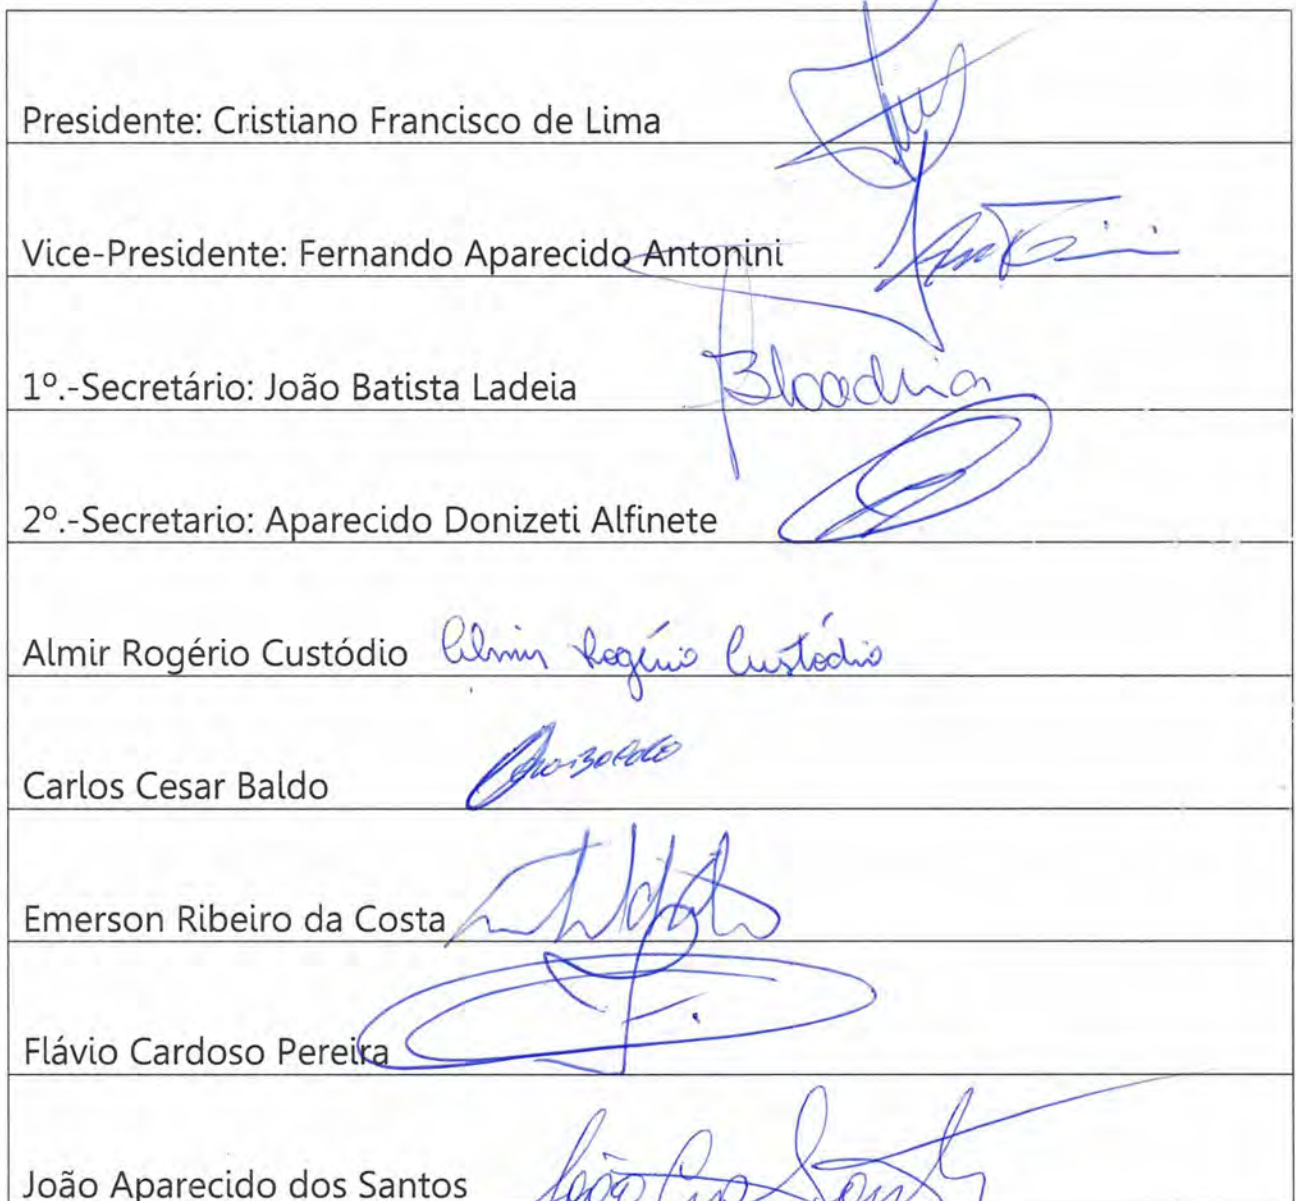 Presidente: Cristiano Francisco de Lima
Vice-Presidente: Fernando Aparecido Antonini
1º.-Secretário: João Batista Ladeia
2º.-Secretario: Aparecido Donizeti Alfinete
Almir Rogério Custódio Almir Rogério Custódio
Carlos Cesar Baldo
Emerson Ribeiro da Costa
Flávio Cardoso Pereira
João Aparecido dos Santos João